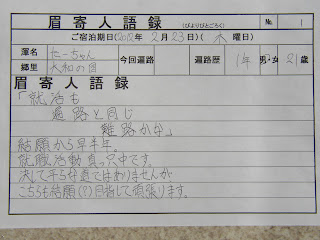 眉寄人語録 (びよりびとごろく) No. 1
ご宿泊期日(2012年2月23日)(木曜日)
渾名 たーちゃん 今回遍路 遍路歴 1年 男・女 21歳
郷里 大和の国
眉寄人語録
「就活も
遍路と同じ
難路かな」
結願から早半年。
就職活動真っ只中です。
決して平らな道ではありませんが
こちらも結願(?)目指して頑張ります。